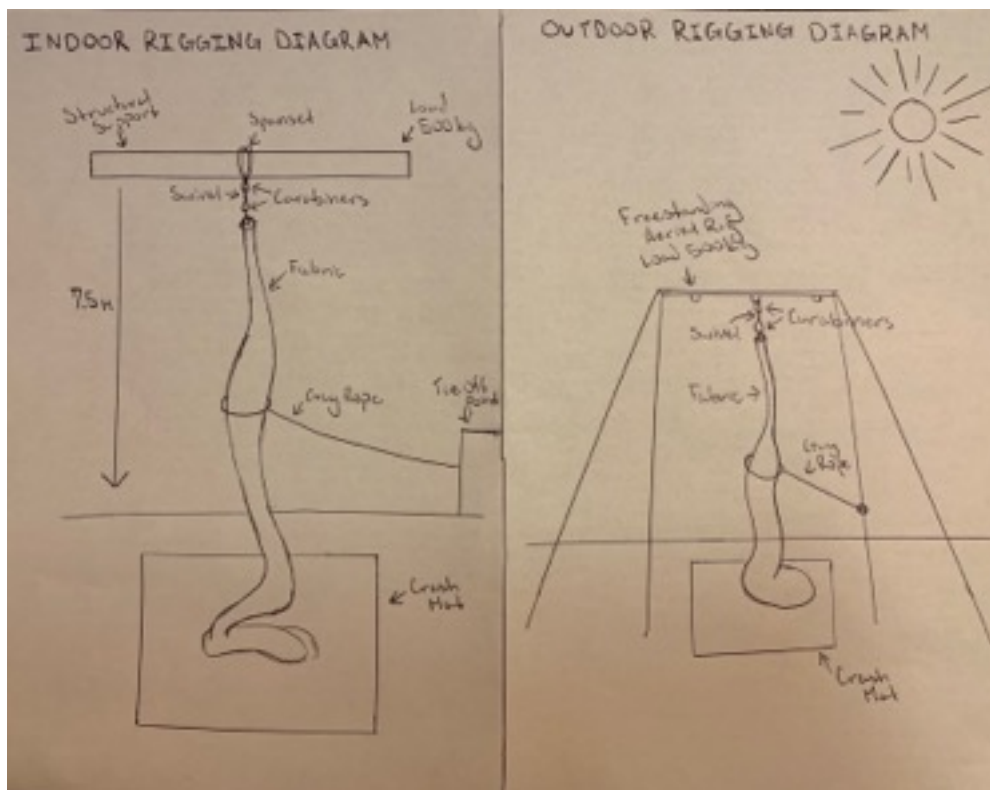 INDOOR RIGGING DIAGRAM
Structural
Support
Spanset
Load
500kg
Swivel
Carabiners
Fabric
7.5m
Guy Rope
Tie off
Point
Crash
Mat
OUTDOOR RIGGING DIAGRAM
Freestanding
Aerial Rig
Load 500kg
Swivel
Carabiners
Fabric
Guy
Rope
Crash
Mat